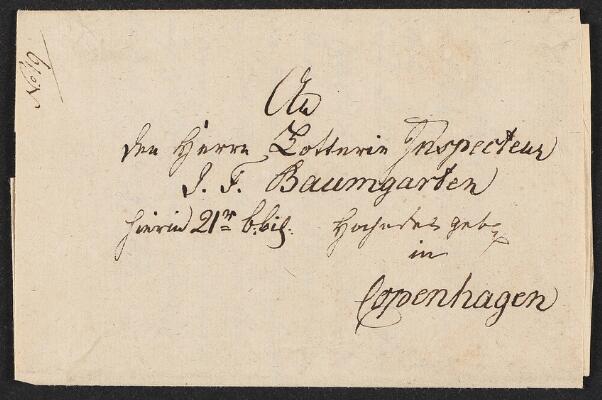 No 19
An
den Herrn Lotterie Inspecteur
J. F. Baumgarten
hierin 21
in
Copenhagen